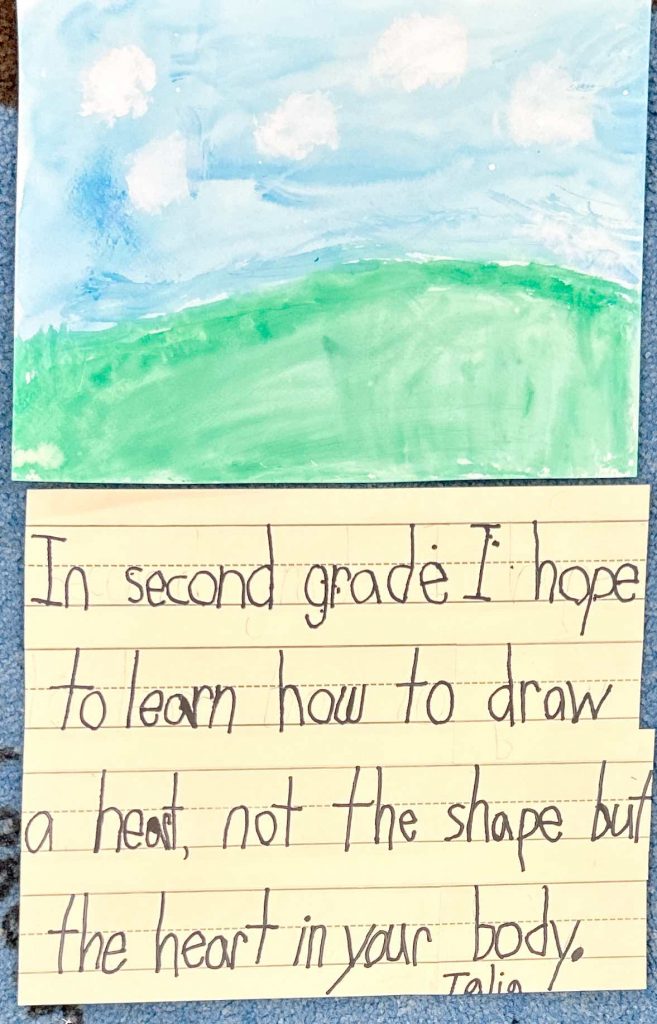 In second grade I hope
to learn how to draw
a heart, not the shape but
the heart in your body.
Talia